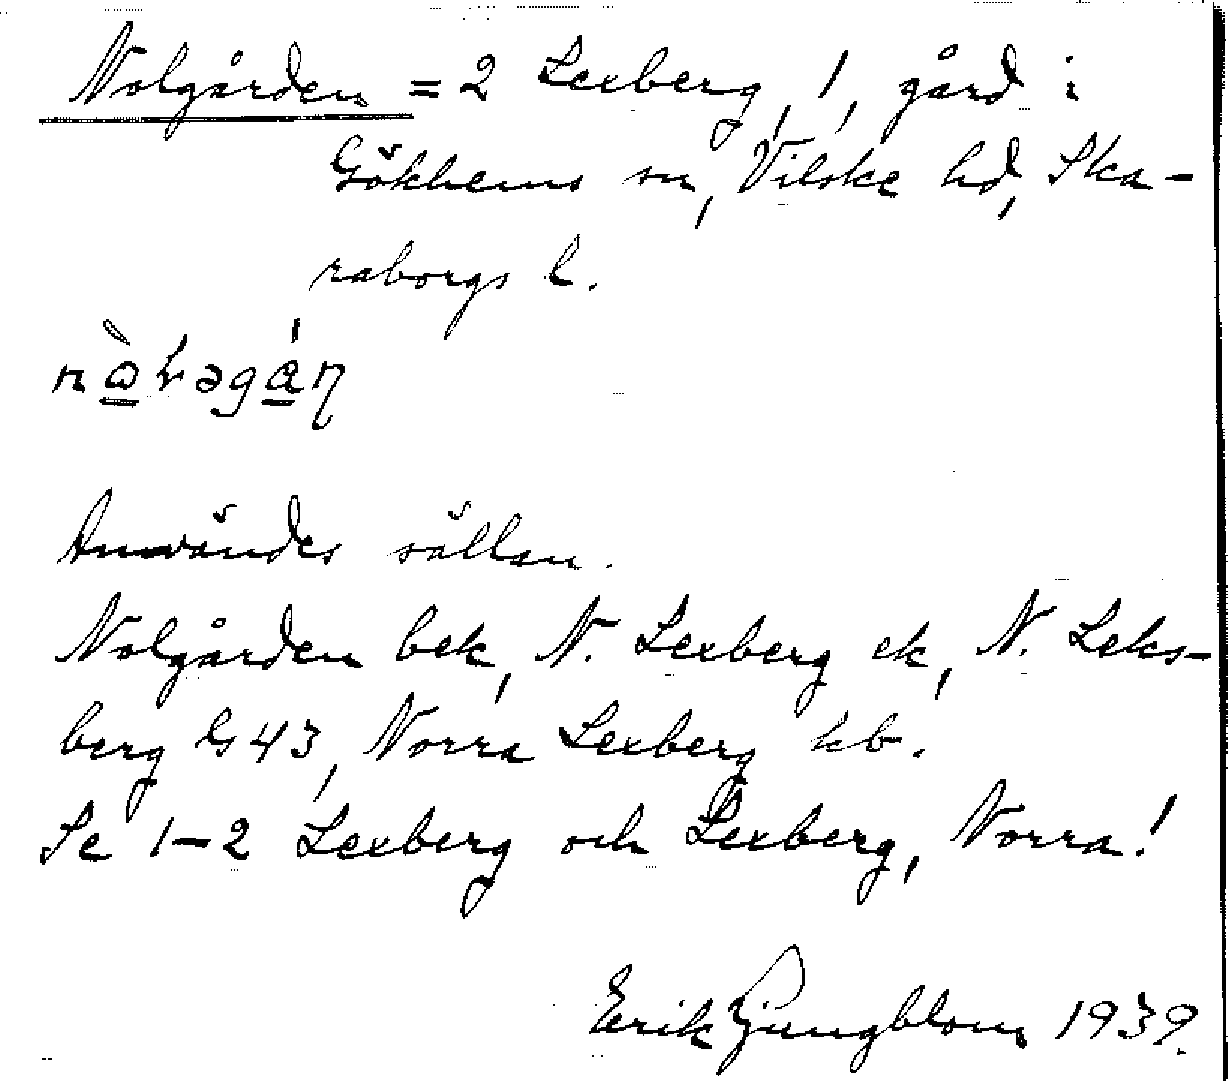 Nolgården = 2 Lexberg, 1, gård i
Gökhems sn, Vilske hd, Ska-
raborgs l.
Användes sällan.
Nolgården bek, N. Lexberg ek, N. Leks-
berg G 43, Norra Lexberg kb.
Se 1-2 Lexberg och Lexberg, Norra!
Erik Ljungblom 1939.